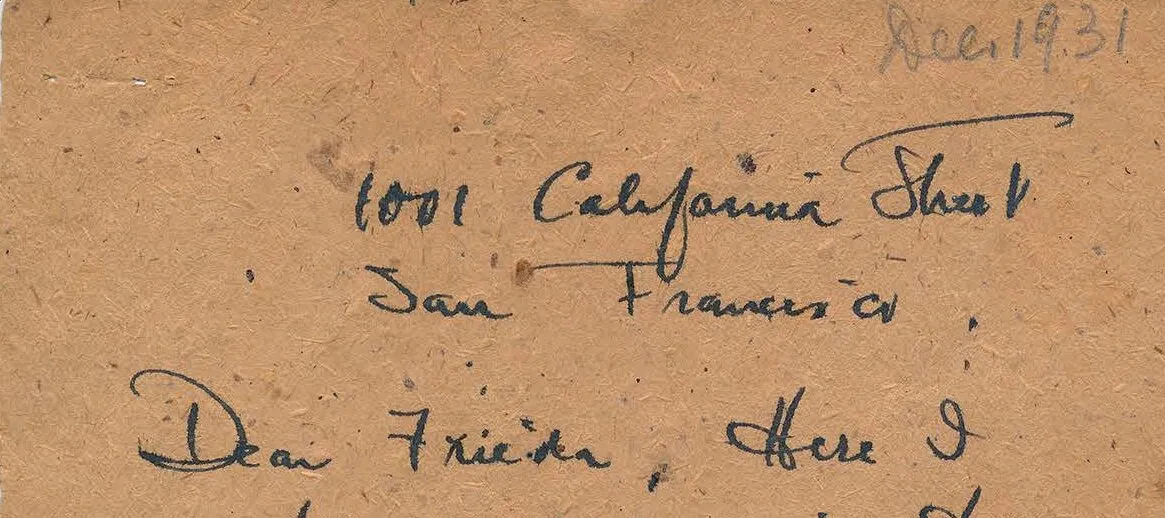 Dec. 1931
1001 California Street
San Francisco.
Dear Frieda, Here I